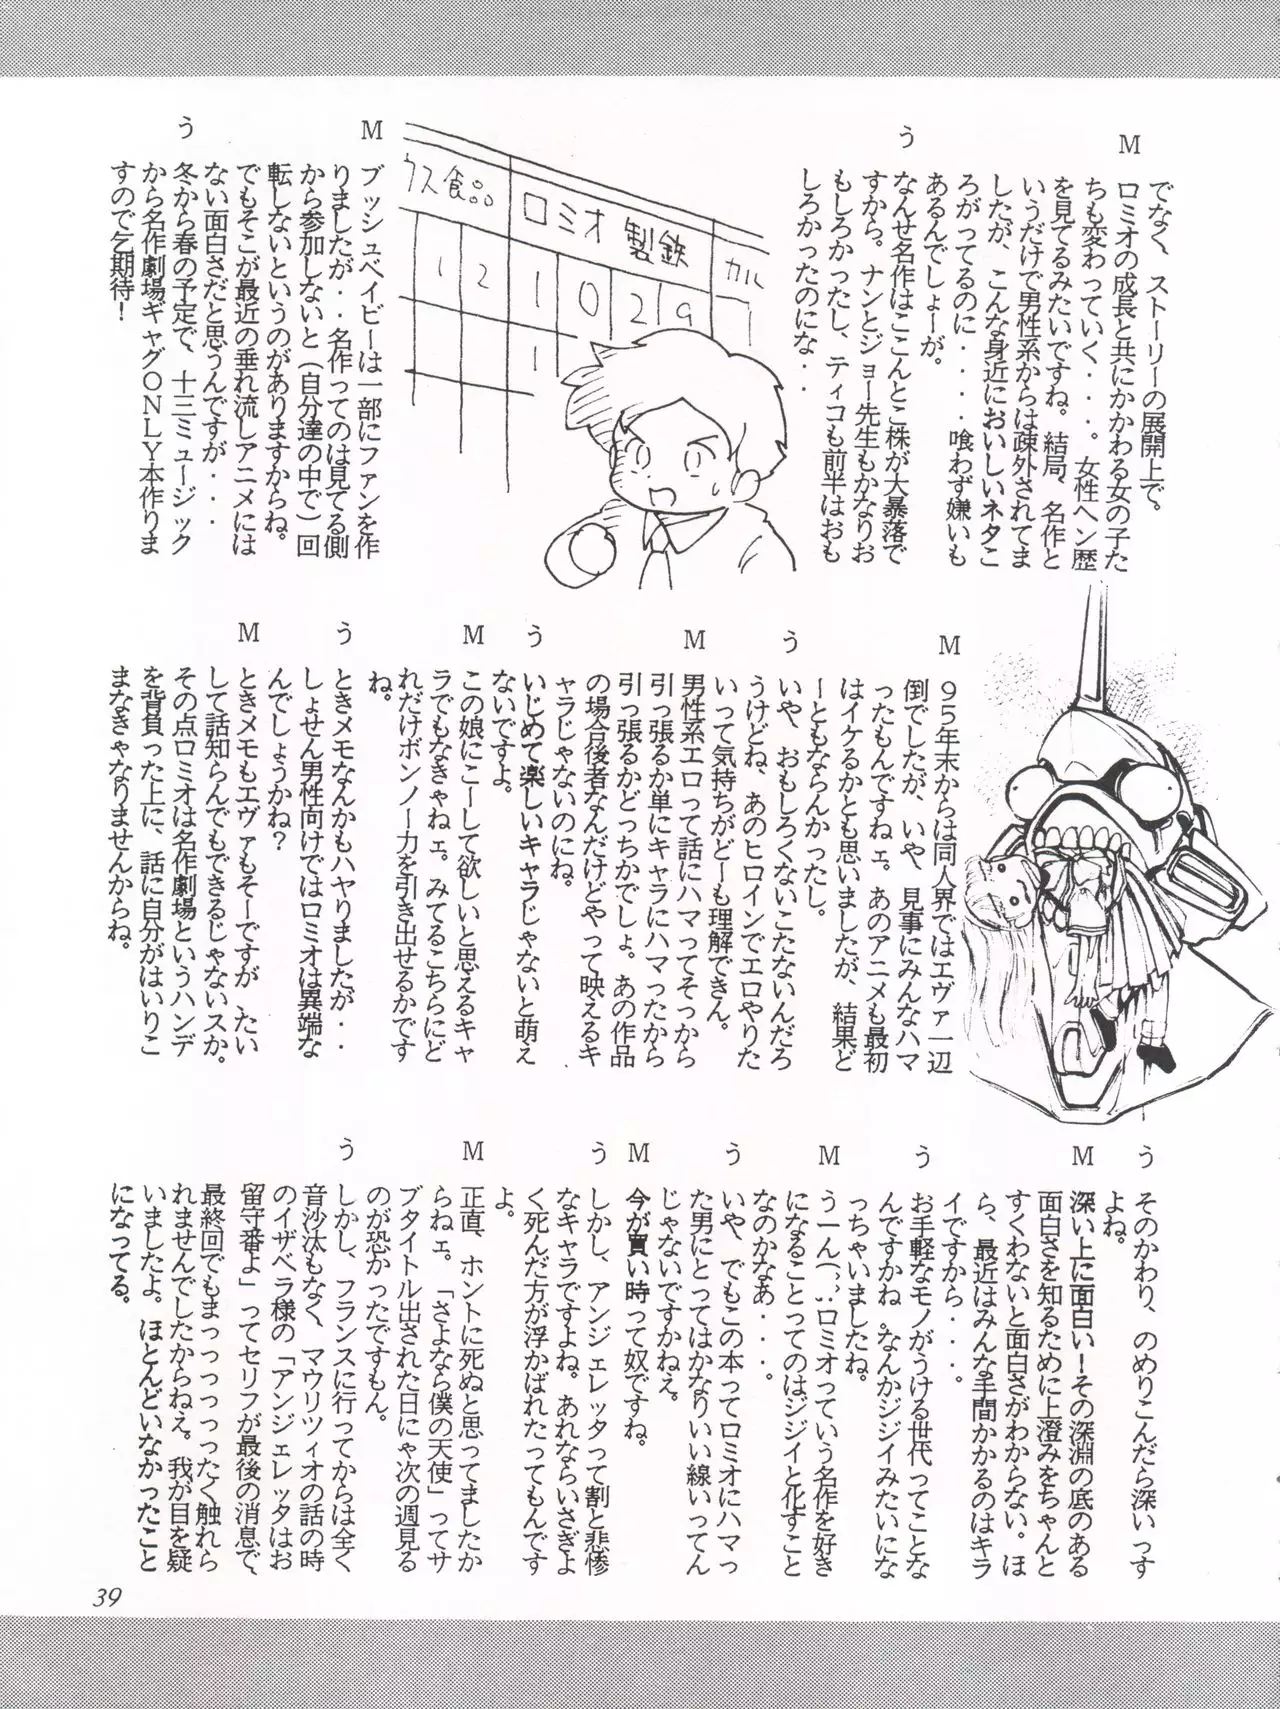 でなく、ストーリーの展開上で。
M
ロミオの成長と共にかかわる女の子た
ちも変わっていく・・・。女性ヘン歴
を見てるみたいですね。結局、名作と
いうだけで男性系からは疎外されてま
したが、こんな身近においしいネタこ
ろがってるのに・・・・喰わず嫌いも
あるんでしょーが。
う
なんせ名作はここんとこ株が大暴落で
すから。ナンとジョー先生もかなりお
もしろかったし、ティコも前半はおも
しろかったのにな・・
ウス食品
ロミオ製鉄
カル
1 2
1 0 2 9
1
M
ブッシュベイビーは一部にファンを作
りましたが・・名作ってのは見てる側
から参加しないと（自分達の中で）回
転しないというのがありますからね。
でもそこが最近の垂れ流しアニメには
ない面白さだと思うんですが・・・
う
冬から春の予定で、十三ミュージック
から名作劇場ギャグONLY本作りま
すので乞期待！
M
95年末からは同人界ではエヴァ一辺
倒でしたが、いや、見事にみんなハマ
ったもんですねェ。あのアニメも最初
はイケるかとも思いましたが、結果ど
ーともならんかったし。
う
いや、おもしろくないこたないんだろ
うけどね、あのヒロインでエロやりた
いって気持ちがどーも理解できん。
M
男性系エロって話にハマってそっから
引っ張るか単にキャラにハマったから
引っ張るかどっちかでしょ。あの作品
の場合後者なんだけどやって映えるキ
ャラじゃないのにね。
う
いじめて楽しいキャラじゃないと萌え
ないですよ。
M
この娘にこーして欲しいと思えるキャ
ラでもなきゃねェ。みてるこちらにど
れだけボンノー力を引き出せるかです
ね。
う
ときメモなんかもハヤりましたが・・
しょせん男性向けではロミオは異端な
んでしょうかね？
M
ときメモもエヴァもそーですが、たい
して話知らんでもできるじゃないスか。
その点ロミオは名作劇場というハンデ
を背負った上に、話に自分がはいりこ
まなきゃなりませんからね。
う
そのかわり、のめりこんだら深いっす
よね。
M
深い上に面白い！その深淵の底のある
面白さを知るために上澄みをちゃんと
すくわないと面白さがわからない。ほ
ら、最近はみんな手間かかるのはキラ
イですから・・・。
う
お手軽なモノがうける世代ってことな
んですかね。なんかジジイみたいにな
っちゃいましたね。
M
うーん（，，，ロミオっていう名作を好き
になることってのはジジイと化すこと
なのかなあ・・・。
う
いや、でもこの本ってロミオにハマっ
た男にとってはかなりいい線いってん
じゃないですかねぇ。
M
今が買い時って奴ですね。
う
しかし、アンジェレッタって割と悲惨
なキャラですよね。あれならいさぎよ
く死んだ方が浮かばれたってもんです
よ。
M
正直、ホントに死ぬと思ってましたか
らねェ。「さよなら僕の天使」ってサ
ブタイトル出された日にゃ次の週見る
のが恐かったですもん。
う
しかし、フランスに行ってからは全く
音沙汰もなく、マウリツィオの話の時
のイザベラ様の「アンジェレッタはお
留守番よ」ってセリフが最後の消息で、
最終回でもまっっっっったく触れら
れませんでしたからねえ。我が目を疑
いましたよ。ほとんどいなかったこと
になってる。
39